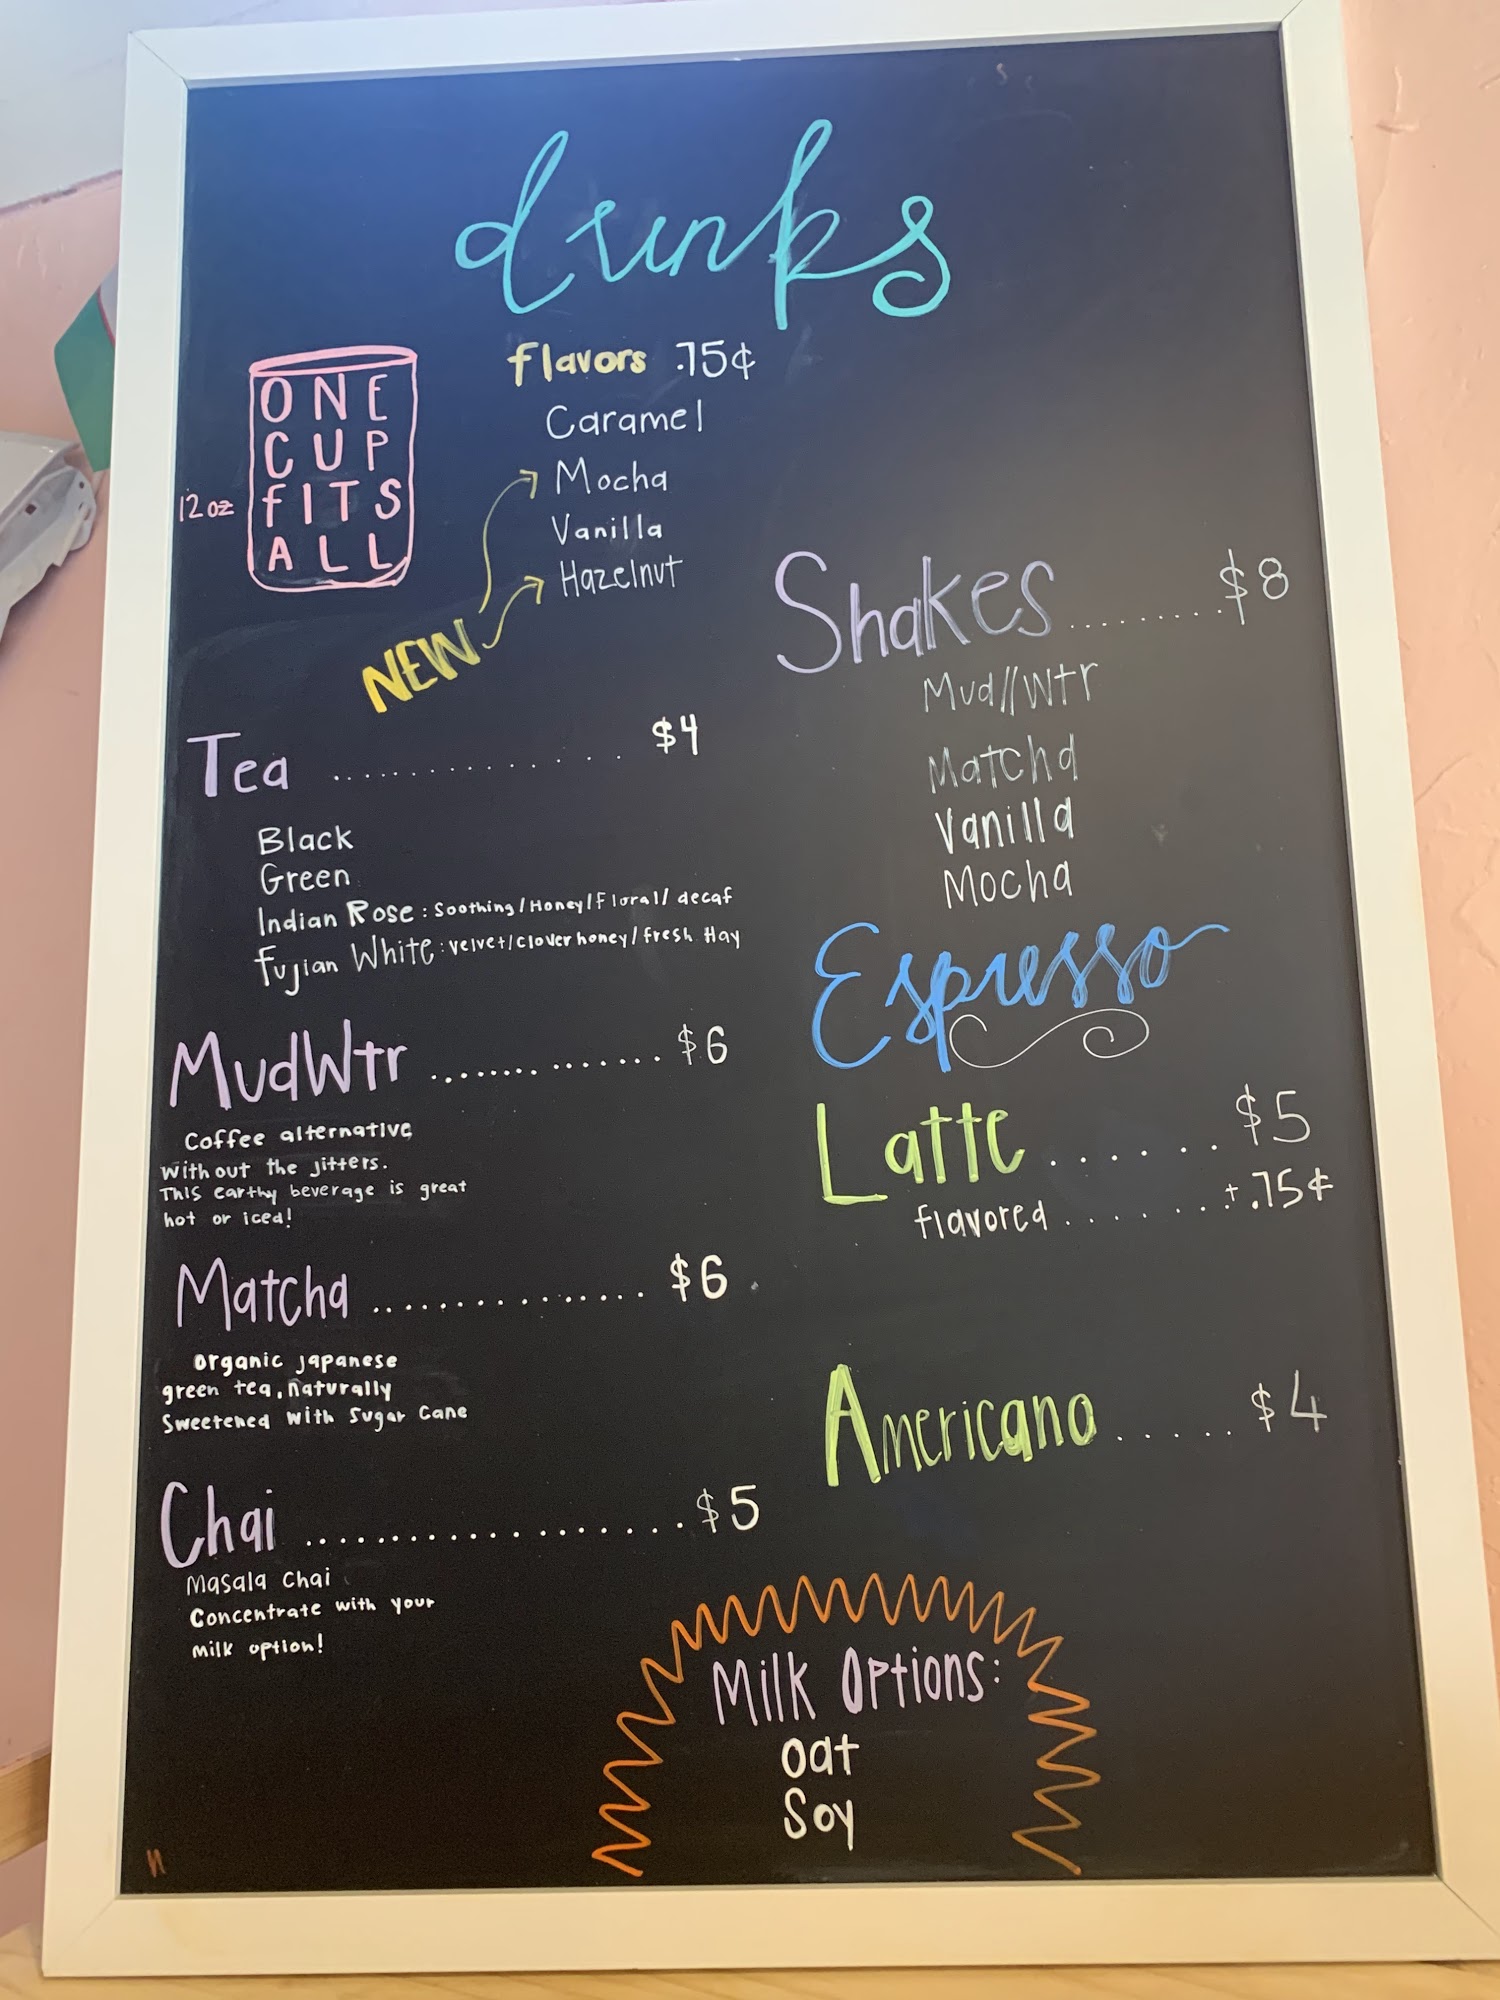 drinks
ONE
CUP
FITS
ALL
12oz
flavors .75¢
Caramel
Mocha
Vanilla
Hazelnut
NEW
Tea .............. $4
Black
Green
Indian Rose: Soothing/Honey/Floral/decaf
Fujian White: velvet/clover honey/fresh Hay
MudWtr ............... $6
Coffee alternative
without the jitters.
This earthy beverage is great
hot or iced!
Matcha ............... $6
organic japanese
green tea, naturally
Sweetened with Sugar Cane
Chai ................... $5
Masala Chai
Concentrate with your
milk option!
Shakes ......... $8
Mud//Wtr
Matcha
Vanilla
Mocha
Espresso
Latte ....... $5
flavored ....... +.75¢
Americano ...... $4
Milk Options:
Oat
Soy